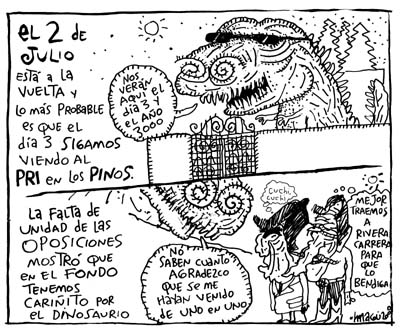 EL 2 DE
JULIO
ESTÁ A LA
VUELTA Y
LO MÁS PROBABLE
ES QUE EL
DÍA 3 SIGAMOS
VIENDO AL
PRI EN LOS PINOS.
NOS
VERÁN
AQUÍ EL
DÍA 3 Y
EL AÑO
3000
LA FALTA DE
UNIDAD DE LAS
OPOSICIONES
MOSTRÓ QUE
EN EL FONDO
TENEMOS
CARIÑITO POR
EL DINOSAURIO
NO
SABEN CUÁNTO
AGRADEZCO
QUE SE ME
HAYAN VENIDO
DE UNO EN UNO
CUCHI,
CUCHI
MEJOR
TRAEMOS
A
RIVERA
CARRERA
PARA
QUE
LO
BENDIGA